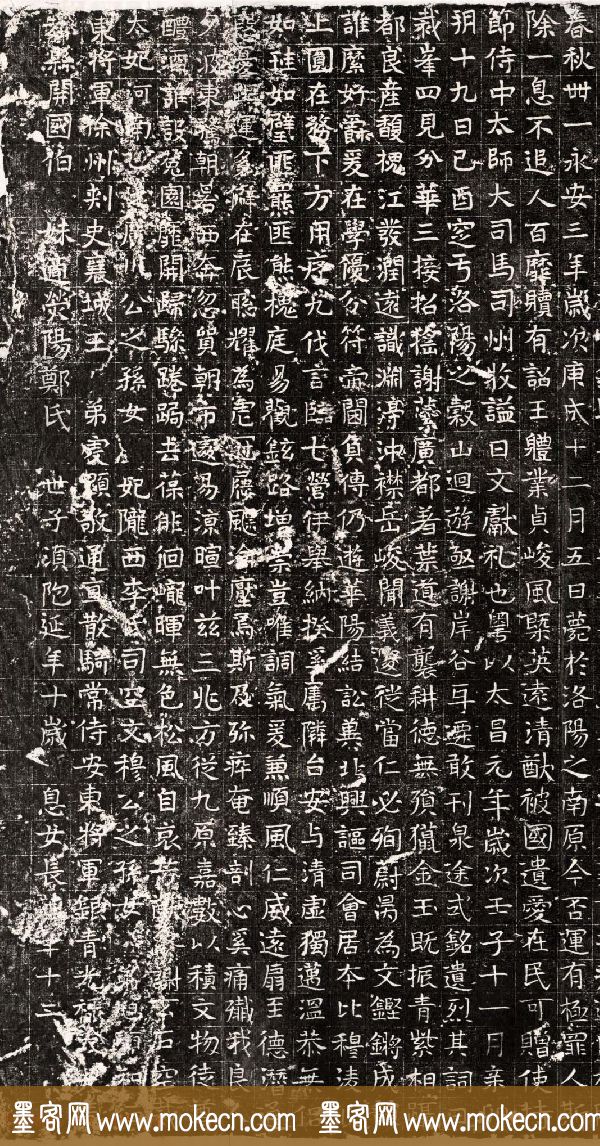 春秋卌一永安三年歲次庚戌十二月五日薨於洛陽之南原今否運有極罪人斯
除一息不追人百靡贖有詔王軆業貞峻風槩英遠清猷被國遺愛在民可贈使持
節侍中太師大司馬司州牧諡曰文獻礼也粤以太昌元年歲次壬子十一月辛
朔十九日己酉窆于洛陽之穀山迴遊亟謝岸谷互遷敢刊泉途式銘遺烈其詞
載峯四見分華三接招搖謝蘂廣都若葉道有襲耕德無殞獵金玉既振青紫相
都良産馥楩江發潤遠識淵渟沖襟岳峻聞義遂從當仁必殉蔚昺為文鏗鏘成
誰縻好爵爰在學優分符帝閫負傳仍遊華陽結訟冀北興謳司會居夲比穆
上圓在務下方用序九伐言臨七營伊舉納揆 屬隣台安与清虛獨邁溫恭無
如珪如璧匪熊匪 槐庭易觀鉉路增 豈唯調氣爰兼順風仁威遠扇至德潛
在辰 耀為 斯及弥瘁奄臻剖心奚痛殲我良
夕 東 朝 西 忽貿朝市遽易涼暄叶茲三兆方從九原嘉數以積文物徒
醴酒誰設菟園靡開歸驂踡跼去葆俳佪巘暉無色松風自哀
太妃河南 公之孫女 妃隴西李氏司空文穆公之孫女
東將軍徐州刾史襄城王 弟 顯敬通直散騎常侍安東將軍銀青光禄
縣開國伯 妹適滎陽鄭氏 世子頌 延年十歲 息女長 年十三
墨客网 www.mokecn.com 墨客网 www.mokecn.com